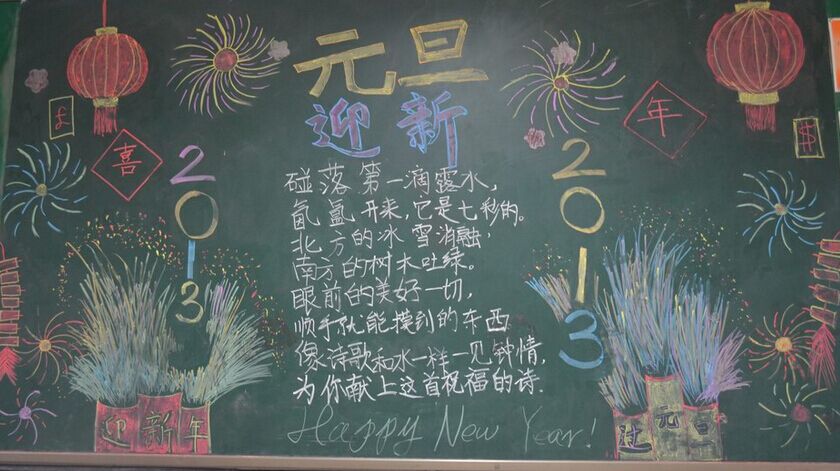 元旦
迎新
£
喜
年
$
2013
2013
碰落第一滴露水,
氤氲开来,它是七秒的。
北方的冰雪消融
南方的树木吐绿。
眼前的美好一切,
顺手就能摸到的东西
像诗歌和水一样一见钟情,
为你献上这首祝福的诗.
Happy New Year!
迎新年
过元旦